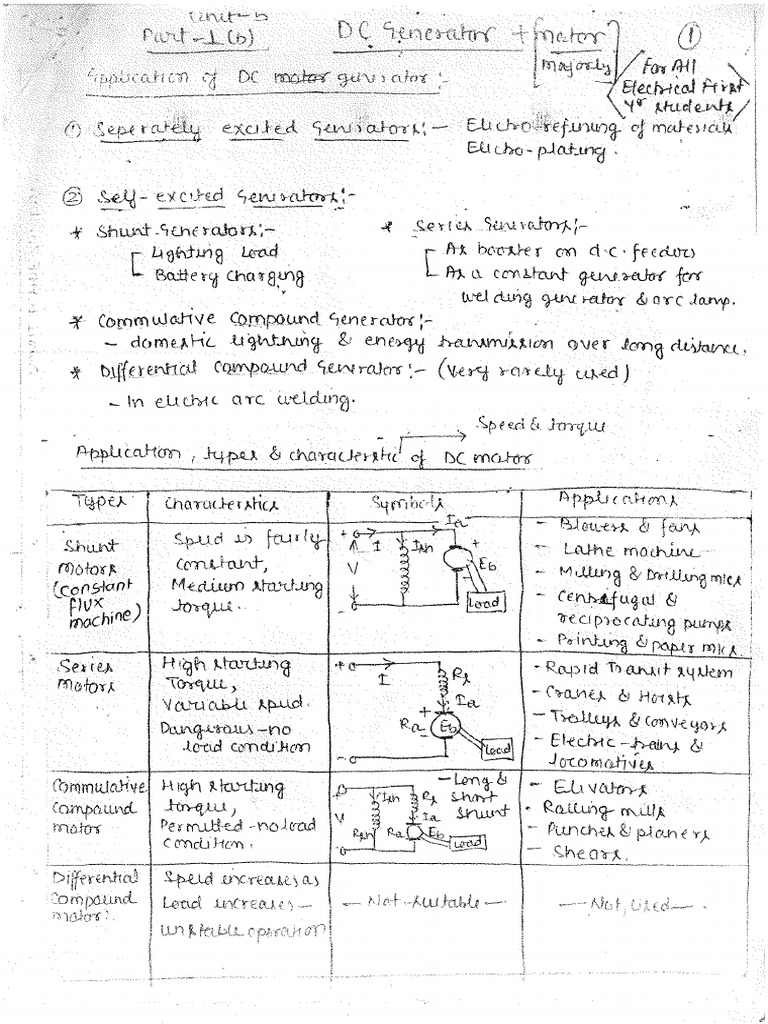 Unit-b
Part-1(b) DC Generator + [motor] majorly ①
<For All Electrical First yr students>
Application of DC motor generator:-
① Seperately excited Generators:- Elictro-refining of materials
Elictro-plating.
② Self-excited Generators:-
* Shunt-Generators:-
Lighting Load
Battery Charging
* Series Generators:-
As booster on d.c. feeders
As a constant generator for
welding generator & arc lamp.
* Commulative Compound Generator:-
- domestic lightning & energy transmission over long distance.
* Differential Compound Generator:- (Very rarely used)
- In elictric arc welding.
Speed & torque
Application, types & characteristic of DC motor
Types Characteristics Symbols Applications
Shunt
Motors
(constant
flux
machine)
Speed is fairly
constant,
Medium starting
torque.
+ I Ish Ia
V + Eb -
- Load
- Blowers & fans
- Lathe machine
- Milling & Drilling m/cs
- Centrifugal &
reciprocating pumps
- Printing & paper m/cs
Series
Motors
High starting
Torque,
Variable speed.
Dangerous-no
load condition
+ I Rs
Ia
+ Ra Eb -
Load
-
- Rapid Transit system
- Cranes & Hoists
- Trolleys & conveyors
- Electric-trains &
locomotives
Commulative
Compound
motor
High starting
torque,
Permitted-noload
Condition.
- Long &
short
shunt
Ish Rs
V Ia
Rsh Ra Eb Load
- Elivators
- Rolling mills
- Punches & planers
- Shears.
Differential
Compound
motor:
Speed increases as
Load increases-
unstable operation
- Not-suitable -
- Not, Used -.